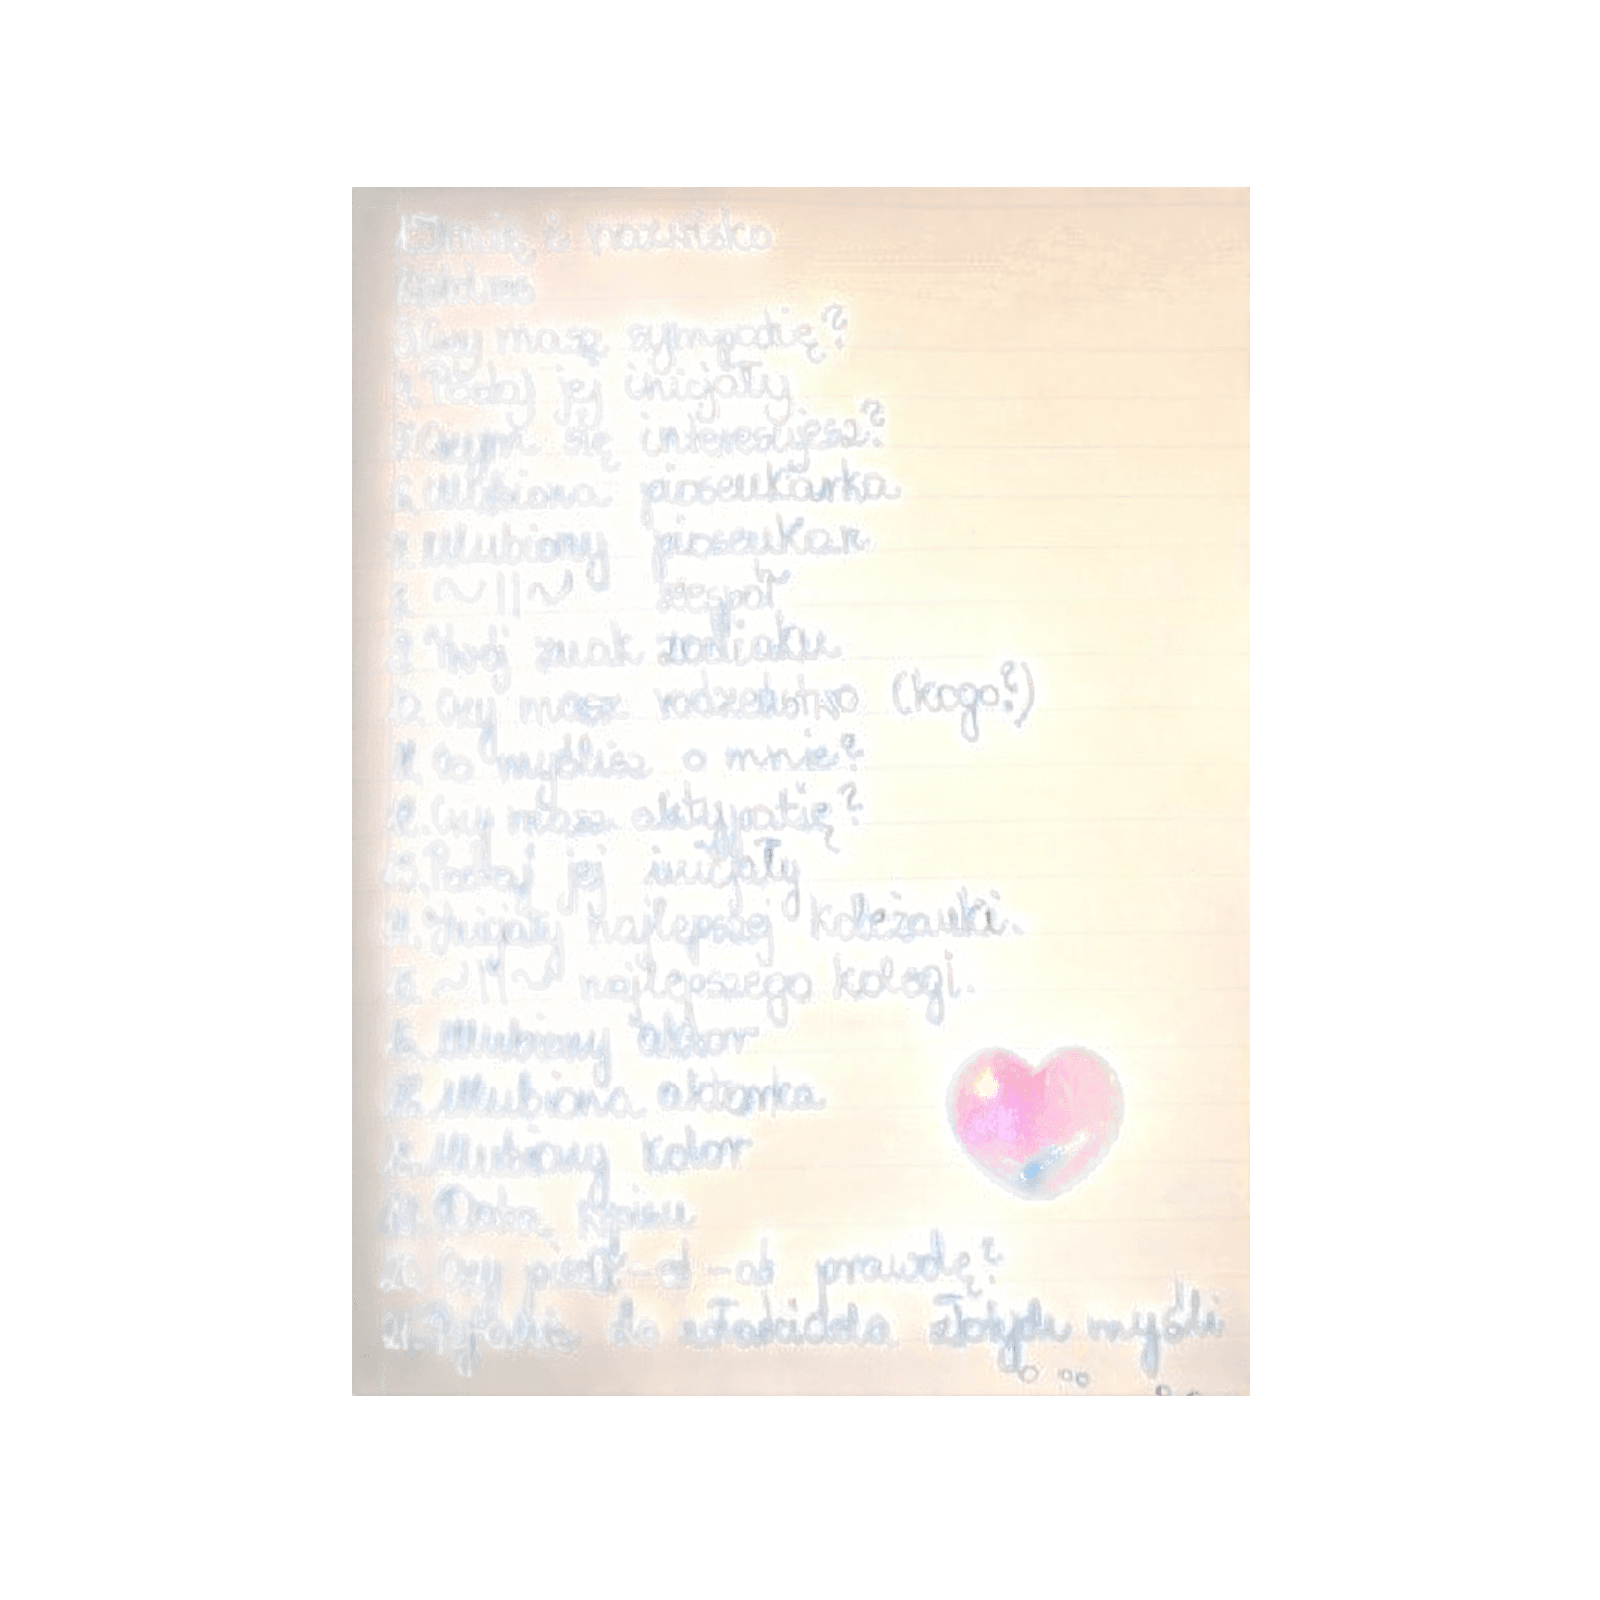 1. Imię i nazwisko
2.
3. Czy masz sympatię?
4. Podaj jej inicjały
5. Czym się interesujesz?
6. Ulubiona piosenkarka
7. Ulubiony piosenkarz
8. ~||~ zespół
9. Twój znak zodiaku
10. Czy masz rodzeństwo (kogo?)
11. Co myślisz o mnie?
12. Czy masz antypatię?
13. Podaj jej inicjały
14. Inicjały najlepszej koleżanki.
15. ~||~ najlepszego kolegi.
16. Ulubiony aktor
17. Ulubiona aktorka
18. Ulubiony kolor
19. Data wpisu
20. Czy prawdę?
21. do myśli